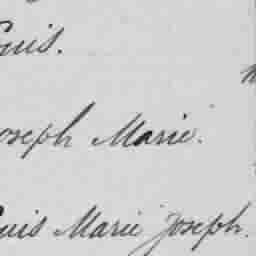 ouis.
oseph Marie.
ouis Marie Joseph.